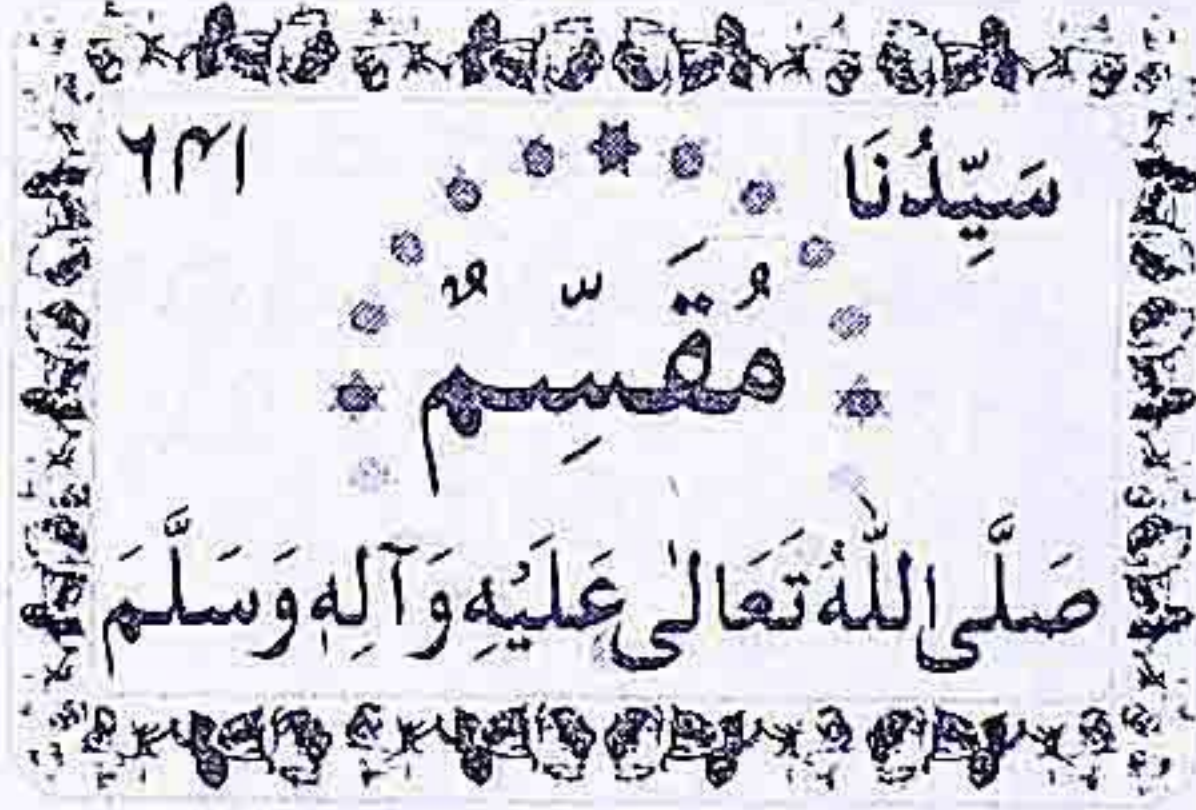 سَيِّدُنَا ۶۴۱
مُقَسِّمٌ
صَلَّى اللّٰهُ تَعَالٰى عَلَيْهِ وَآلِهٖ وَسَلَّمَ